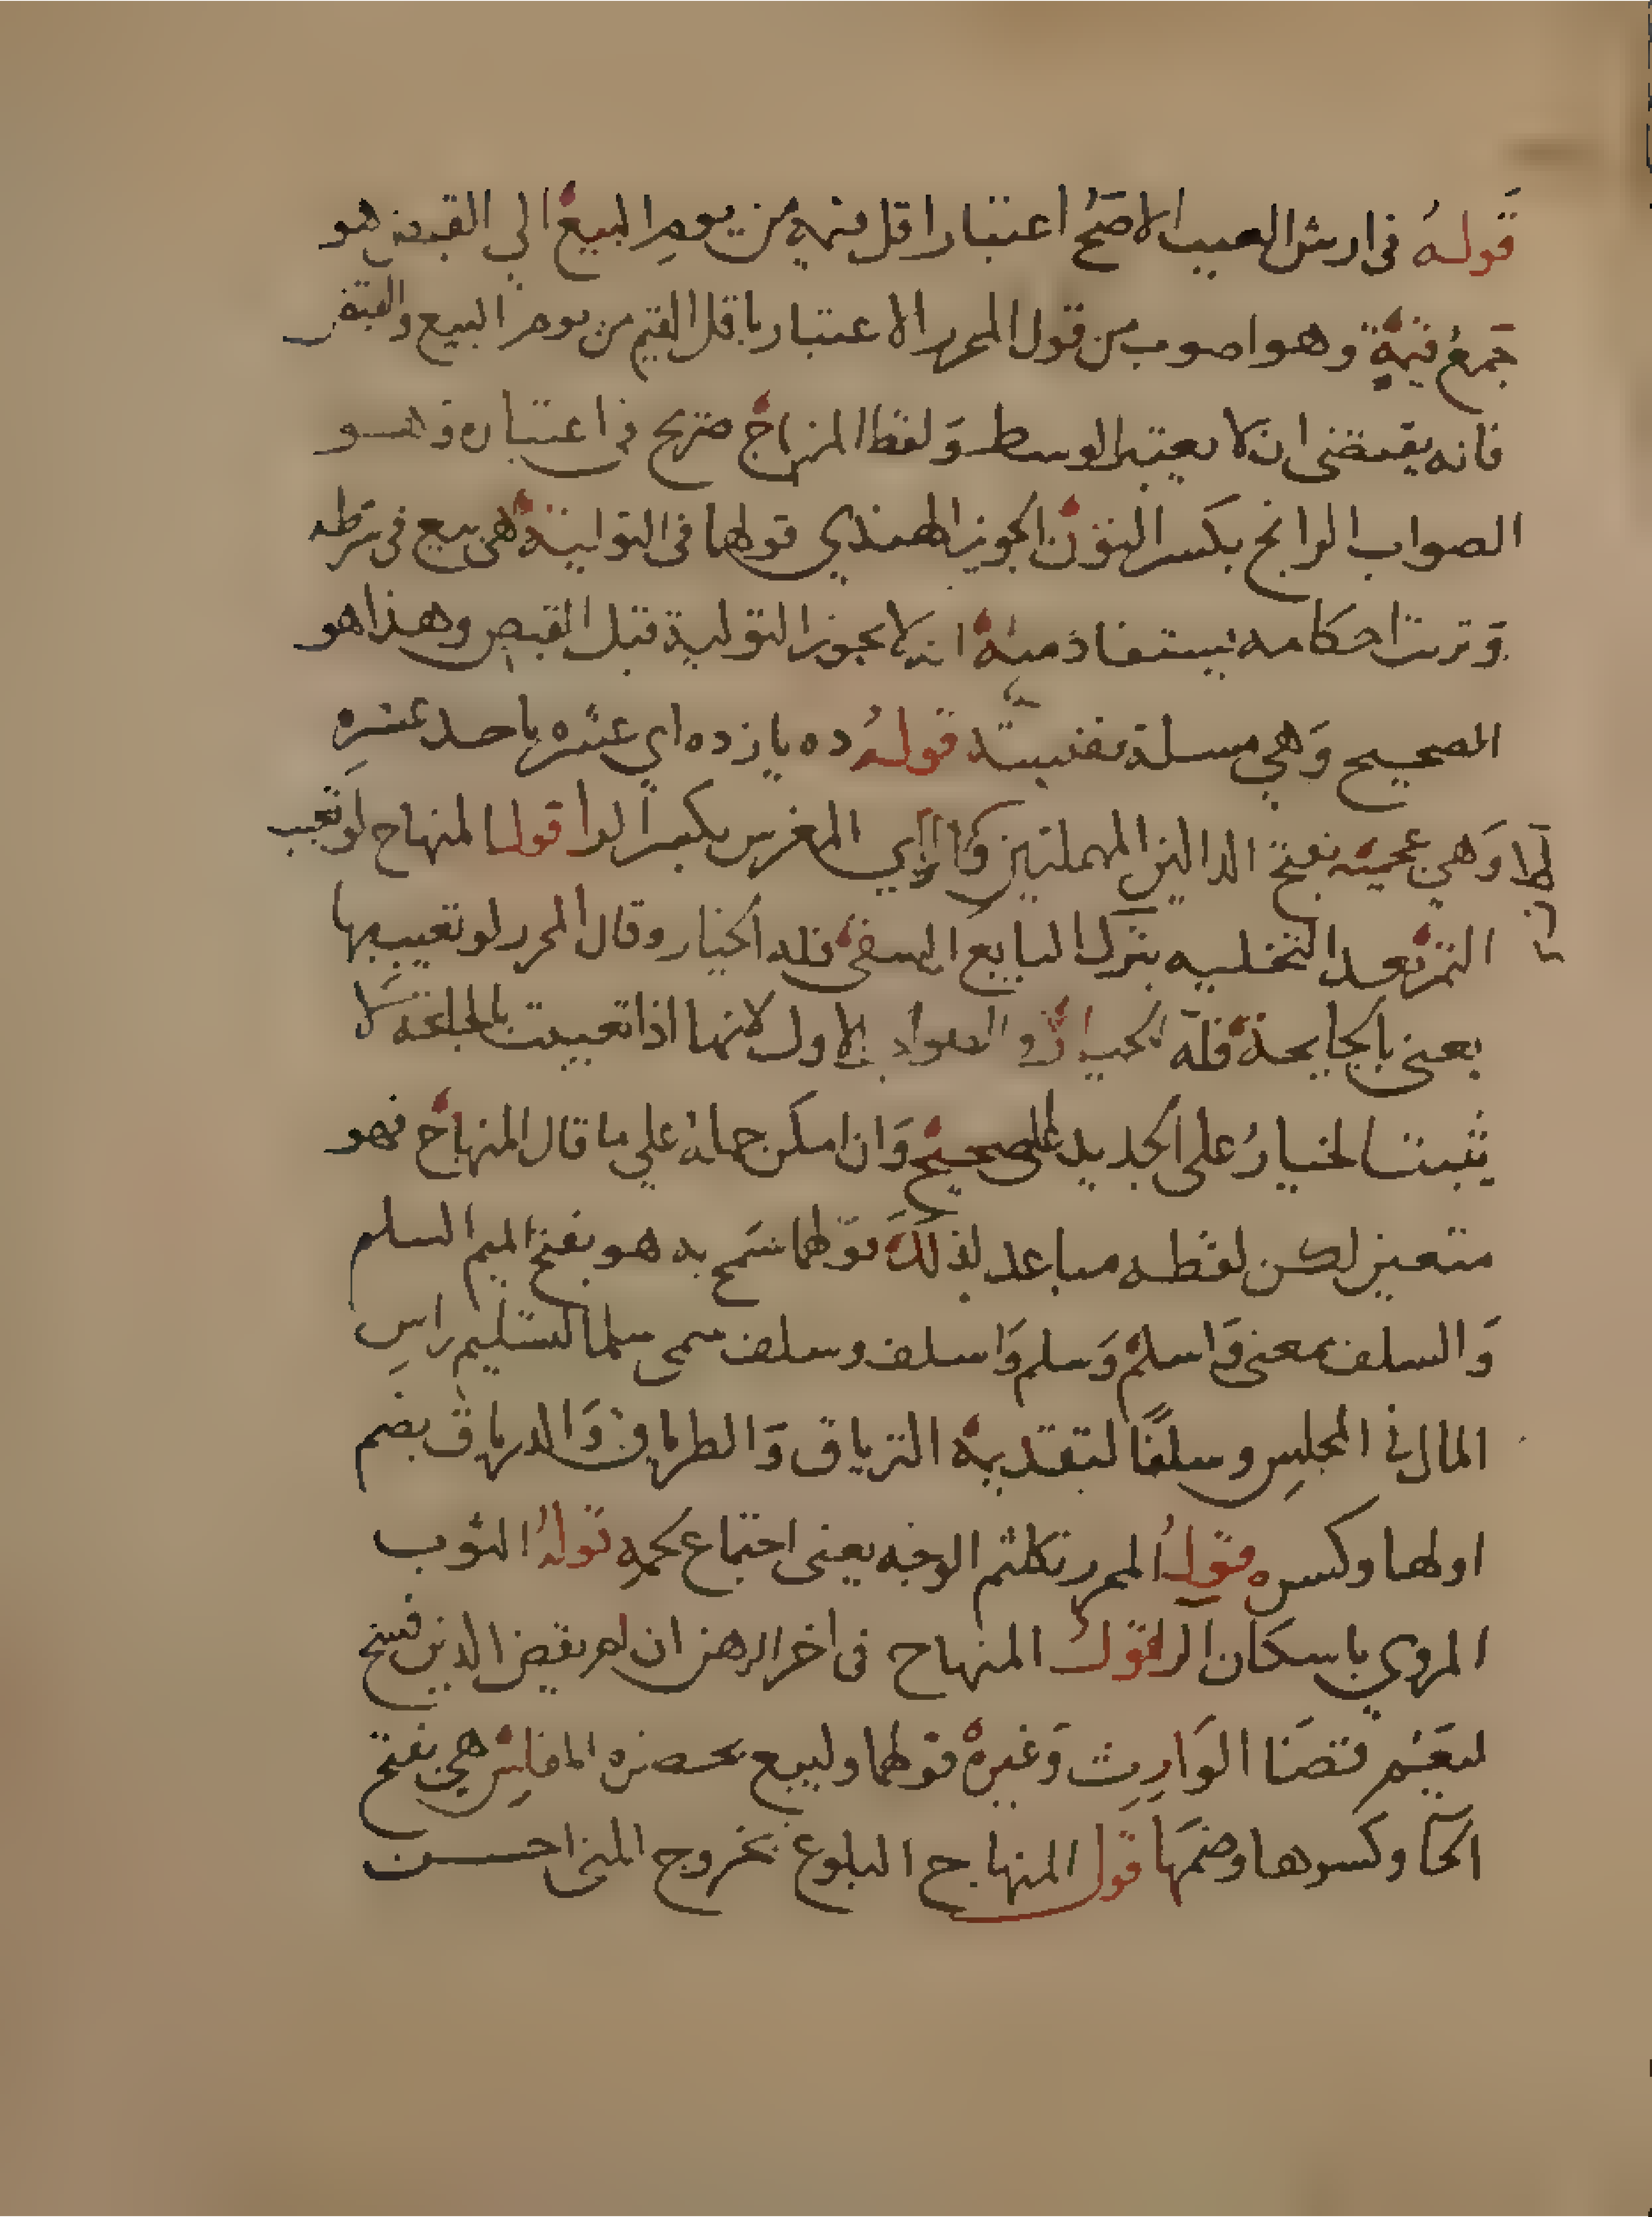 قوله في ارش العيب الاصح اعتبار اقل قيمه من يوم البيع الى القبض هو
جمع قيمة وهو اصوب من قول المحرر الاعتبار باقل القيم من يوم البيع والقبض
فانه يقتضي ان لا يعتبر الوسط ولفظ المنهاج صريح في اعتباره وهو
الصواب الرانج بكسر النون الجوز الهندي قولهما في التولية هي بيع في شرطه
وترتب احكامه يستفاد منه انه لا يجوز التولية قبل القبض وهذا هو
الصحيح وهي مسلة نفيسة قوله ده يازده اي عشره باحد عشره
وهي عجمية بفتح الدالين المهملتين وكالزاي المغرس بكسر الرا قول المنهاج لو تعيب
الثمر بعد التخليه بترك البايع السقي فله الخيار وقال المحرر لو تعيب بها
يعني بالجايحة فله الخيار والصواب الاول لانها اذا تعيبت بالجايحة لا
يثبت الخيار على الجديد الصحيح وان امكن حمله على ما قال المنهاج فهو
متعين لكن لفظه مباعد لذلك قولهما سمح به هو بفتح الميم السلم
والسلف بمعنى واسلم وسلم واسلف وسلف سمى سلما لتسليم راس
المال في المجلس وسلفا لتقديمه الترياق والطرياق والدرياق بضم
اولها وكسره قول المحرر تكلثم الوجه يعني اجتماع لحمه قوله الثوب
المروي باسكان الرا قول المنهاج في اخر الرهن ان لم يقض الدين فسخ
قضا الوارث وغيره قولهما وليبع بحضرة المفلس هي بفتح
الحا وكسرها وضمها قول المنهاج البلوغ بخروج المني احسن